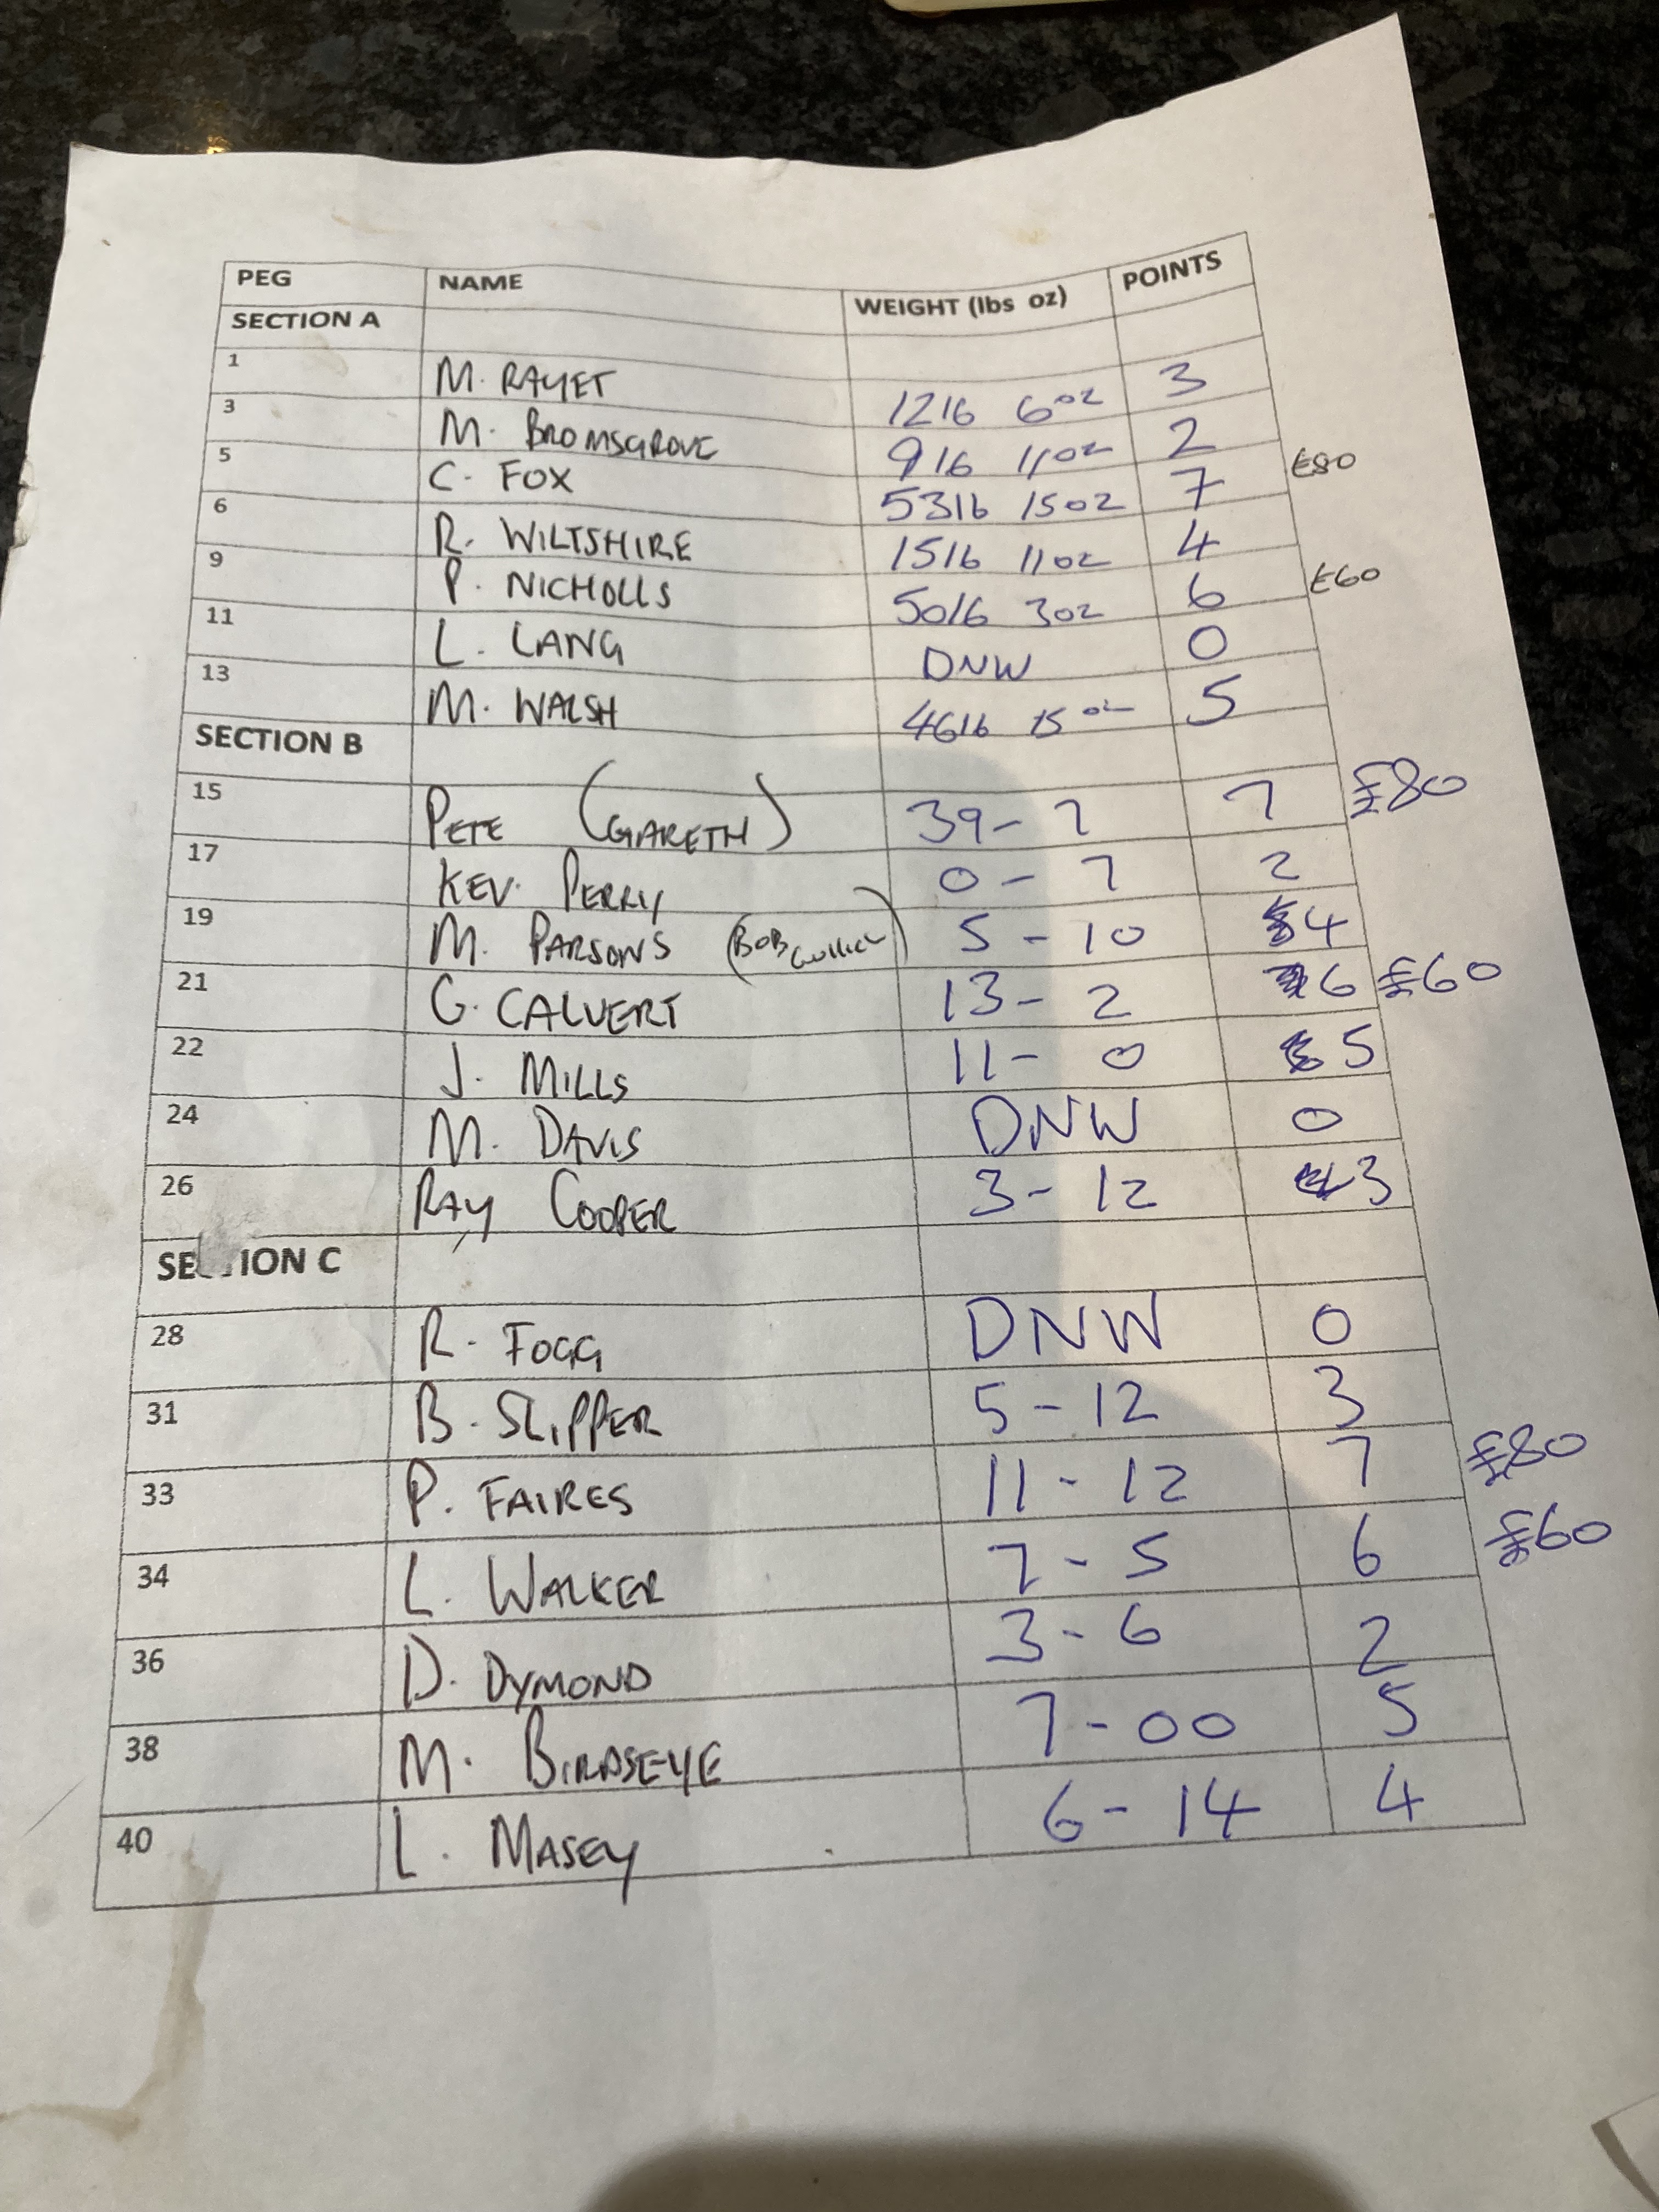 PEG NAME WEIGHT (lbs oz) POINTS
SECTION A
1 M. RAYET 12lb 6oz 3
3 M. BROMSGROVE 9lb 11oz 2
5 C. FOX 53lb 15oz 7 £80
6 R. WILTSHIRE 15lb 11oz 4
9 P. NICHOLLS 50lb 3oz 6 £60
11 L. LANG DNW 0
13 M. WALSH 46lb 15oz 5
SECTION B
15 PETE (GARETH) 39-7 7 £80
17 KEV. PERRY 0-7 2
19 M. PARSONS (BOB 5-10 4
21 G. CALVERT 13-2 6 £60
22 J. MILLS 11-0 5
24 M. DAVIS DNW 0
26 RAY COOPER 3-12 3
SECTION C
28 R. FOGG DNW 0
31 B. SLIPPER 5-12 3
33 P. FAIRES 11-12 7 £80
34 L. WALKER 7-5 6 £60
36 D. DYMOND 3-6 2
38 M. BIRDSEYE 7-00 5
40 L. MASEY 6-14 4